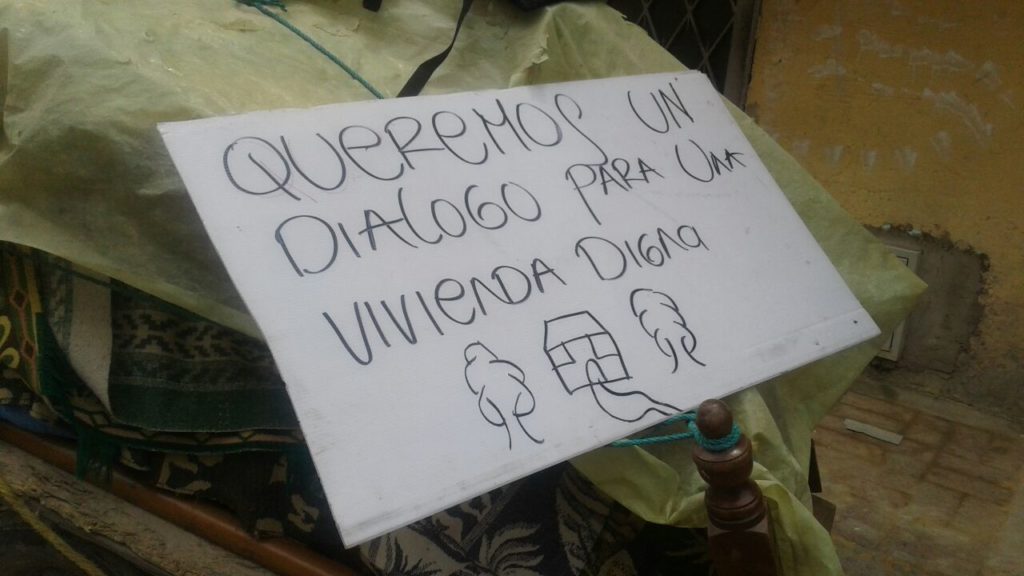 QUEREMOS UN
DIALOGO PARA UNA
VIVIENDA DIGNA